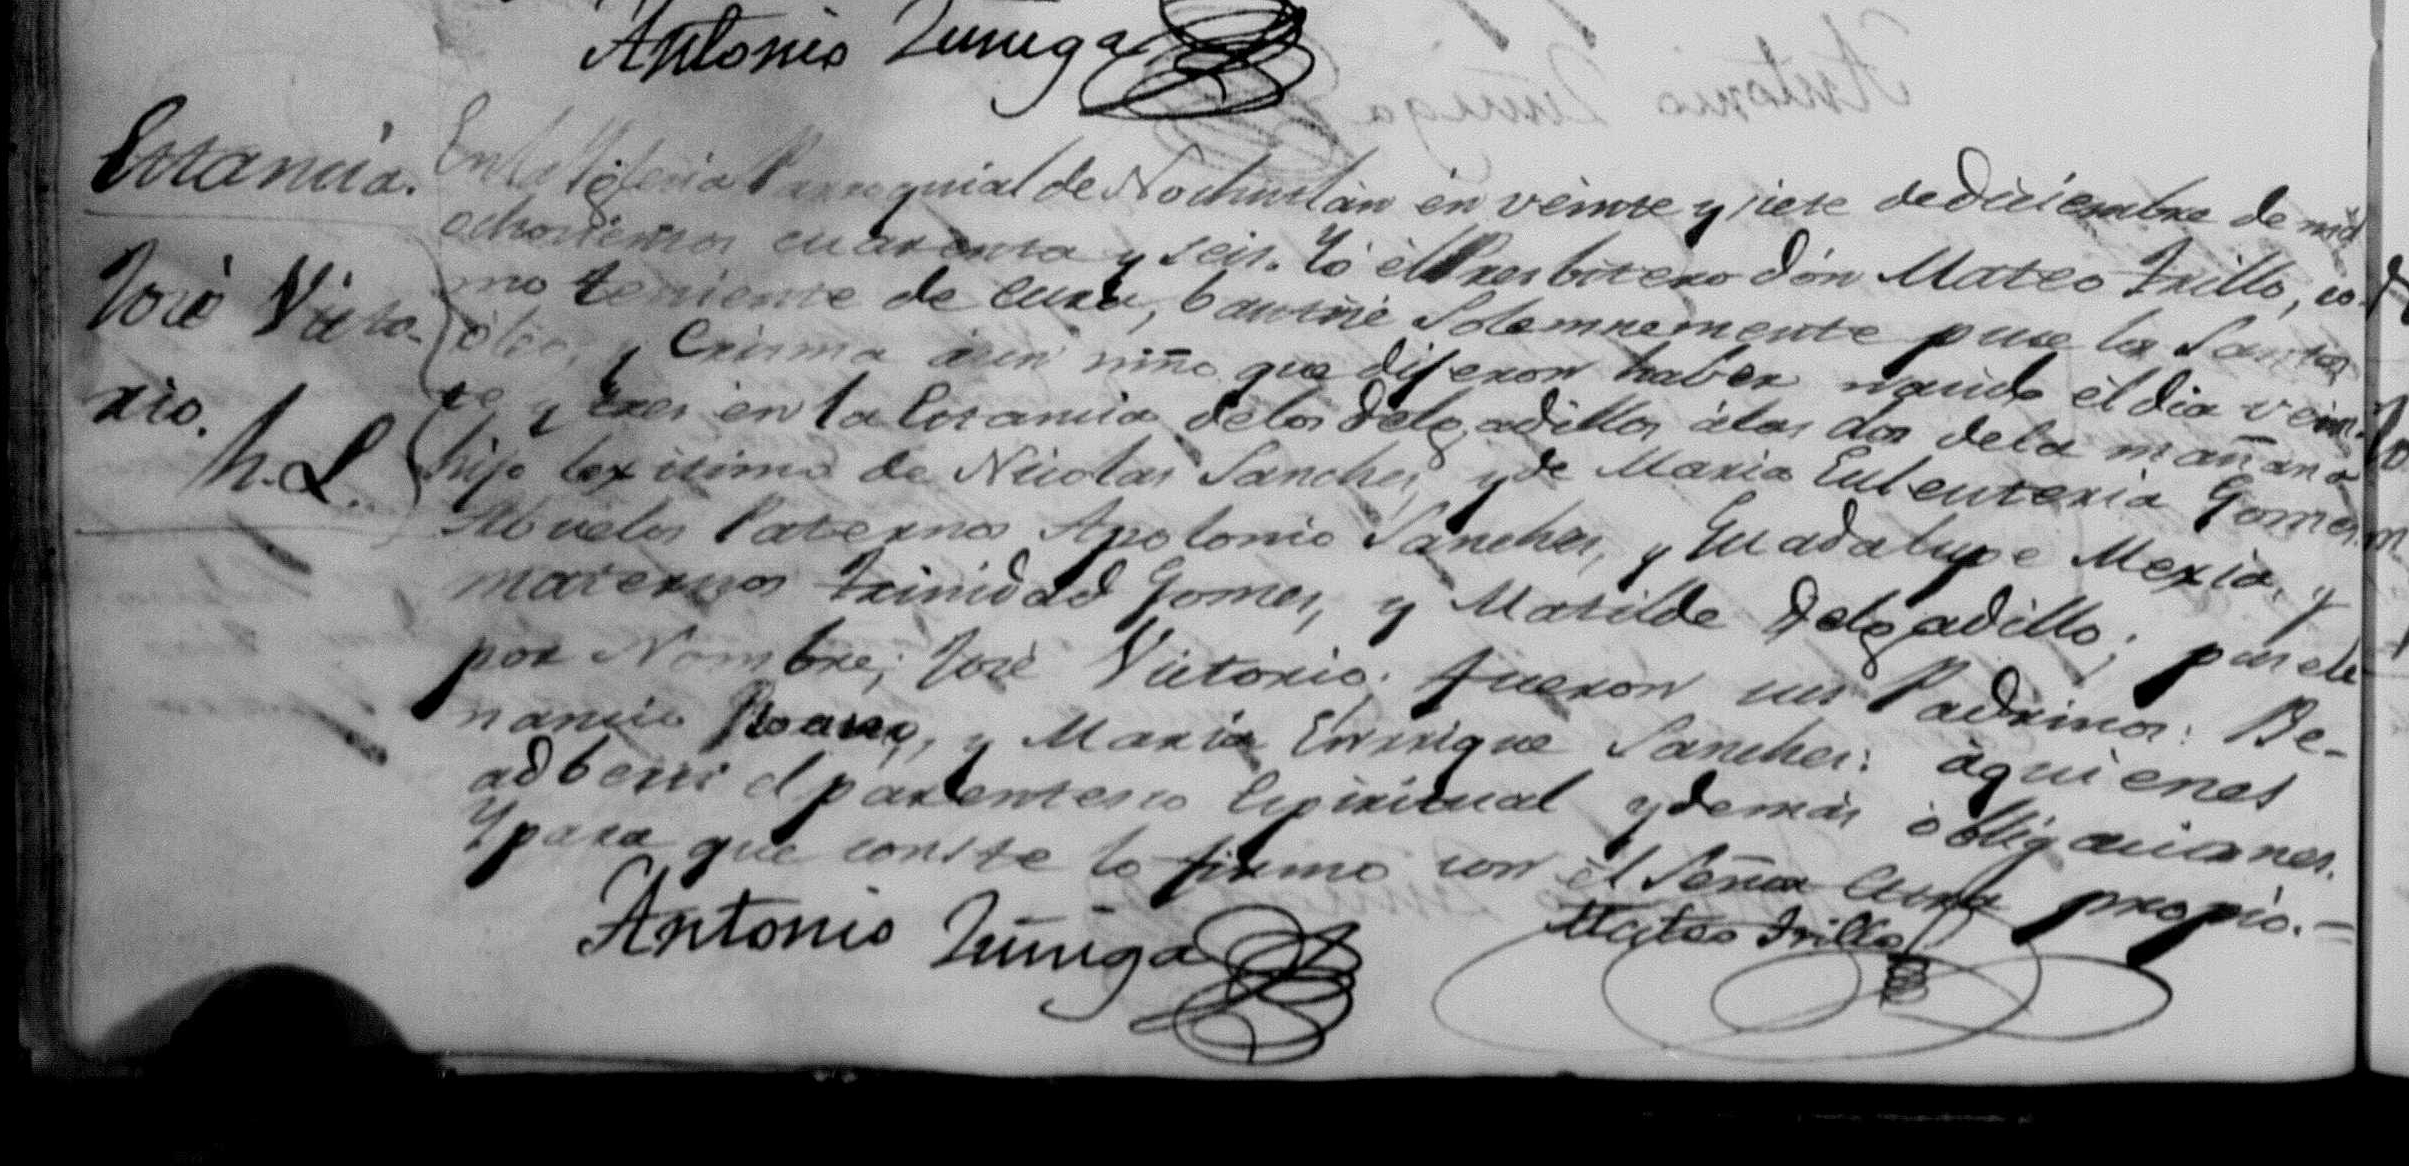 Antonio Zuñiga
Estancia.
José Victo-
rio.
h. L.
En la Yglecia Parroquial de Nochistlán en veinte y siete de diciembre de mil
ochosientos cuarenta y seis. Yó él Presbitero dón Mateo Trillo, co-
mo teniente de Cura, bautisé Solemnemente puse los Santos
óleos, y Crisma á un niño que dijeron haber nacido él dia vein-
te y tres en la Estancia de los Delgadillos á las dos de la mañana
hijo lexitimo de Nicolas Sanches y de Maria Euleuteria Gomes.
Abuelos Paternos Apolonio Sanches, y Guadalupe Mexia, y
maternos Trinidad Gomes, y Matilde Delgadillo; pusele
por Nombre; José Victorio; fueron sus Padrinos: Be-
nancio y Maria Enrrique Sanches: á quienes
adberti el parentesco Espiritual y demás óbligaciones.
Y para que conste lo firmo con él Señor Cura propio.-
Antonio Zuñiga
Mateo Trillo